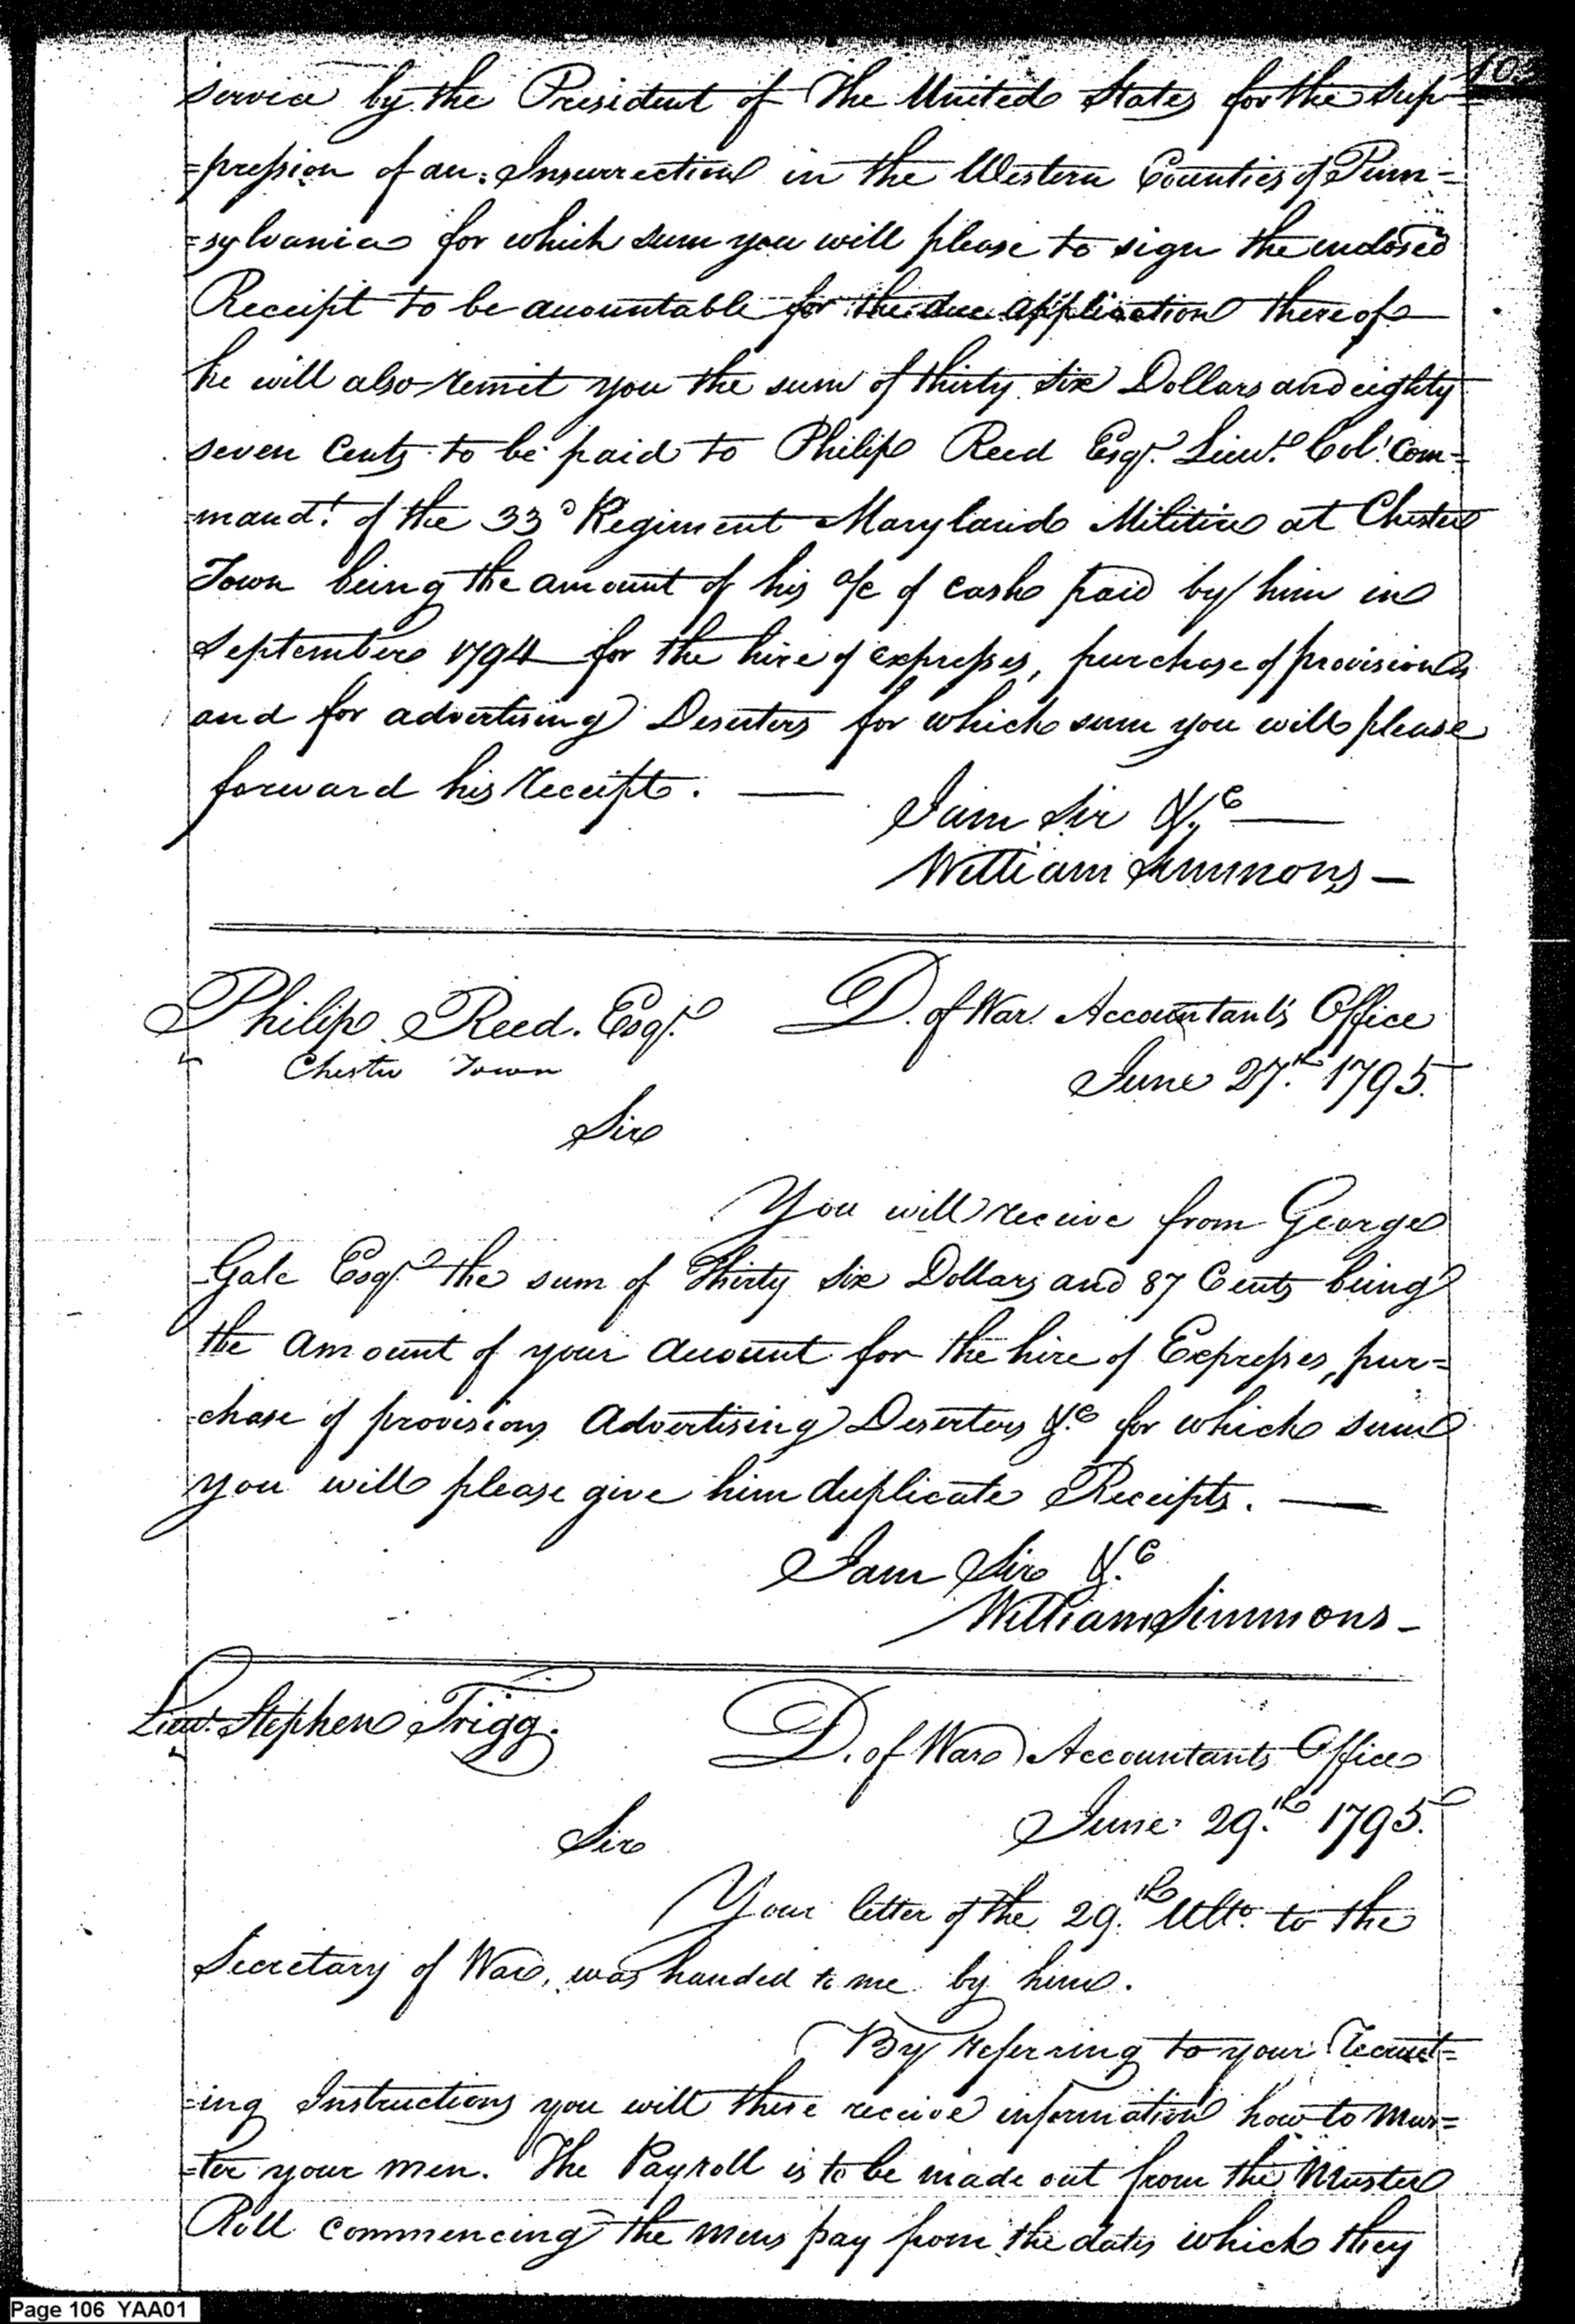 10
service by the President of the United States for the Sup
=pression of an Insurrection in the Western Counties of Penn=
=sylvania for which sum you will please to sign the enclosed
Receipt to be accountable for the due application thereof
he will also remit you the sum of thirty six Dollars and eighty
seven Cents to be paid to Philip Reed Esqr. Lieut. Col. Com=
mandt. of the 33d Regiment Maryland Militia at Chester
Town being the amount of his a/c of cash paid by him in
September 1794 for the hire of expresses, purchase of provisions
and for advertising Deserters for which sum you will please
forward his receipt. —
I am Sir &c —
William Simmons —
Philip Reed. Esqr. D. of War Accountant's Office
Chester Town
June 27.th 1795.
Sir
You will receive from George
Gale Esqr. the sum of Thirty six Dollars and 87 Cents being
the amount of your account for the hire of Expresses, pur=
chase of provisions Advertising Deserters &c for which sum
you will please give him duplicate Receipts. —
I am Sir &c
William Simmons —
Lieut. Stephen Trigg. D. of War Accountants Office
June 29.th 1795.
Sir
Your letter of the 29.th Ulto. to the
Secretary of War, was handed to me by him.
By referring to your Recruit=
=ing Instructions you will there receive information how to Mus=
=ter your men. The Payroll is to be made out from the Muster
Roll commencing the mens pay from the dates which they
Page 106 YAA01